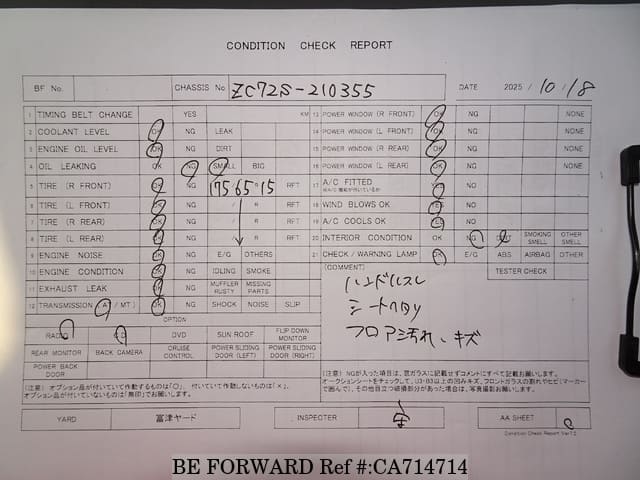 CONDITION CHECK REPORT
BF No. CHASSIS No. ZC72S-210355 DATE 2025/10/18
1 TIMING BELT CHANGE YES KM
2 COOLANT LEVEL OK NG LEAK
3 ENGINE OIL LEVEL OK NG DIRT
4 OIL LEAKING OK NG SMALL BIG
5 TIRE (R FRONT) OK NG 175/65R15 RFT
6 TIRE (L FRONT) OK NG / R RFT
7 TIRE (R REAR) OK NG / R RFT
8 TIRE (L REAR) OK NG / R RFT
9 ENGINE NOISE OK NG E/G OTHERS
10 ENGINE CONDITION OK NG IDLING SMOKE
11 EXHAUST LEAK OK NG MUFFLER RUSTY MISSING PARTS
12 TRANSMISSION (AT / MT) OK NG SHOCK NOISE SLIP
13 POWER WINDOW (R FRONT) OK NG NONE
14 POWER WINDOW (L FRONT) OK NG NONE
15 POWER WINDOW (R REAR) OK NG NONE
16 POWER WINDOW (L REAR) OK NG NONE
17 A/C FITTED YES NG
18 WIND BLOWS OK YES NG
19 A/C COOLS OK YES NG
20 INTERIOR CONDITION OK NG SMOKING SMELL OTHER SMELL
21 CHECK / WARNING LAMP OK E/G ABS AIRBAG OTHER
TESTER CHECK
(COMMENT)
ハンドルスレ
シートヘタリ
フロア汚れ、キズ
OPTION
RADIO CD DVD SUN ROOF FLIP DOWN MONITOR
REAR MONITOR BACK CAMERA CRUISE CONTROL POWER SLIDING DOOR (LEFT) POWER SLIDING DOOR (RIGHT)
POWER BACK DOOR
(注意) オプション品が付いていて作動するものは「○」、付いていて作動しないものは「×」、
オプション品が付いていないものは「無印」でお願いします。
(注意) NGが入った項目は、窓ガラスに記載せずコメントにすべて記載お願いします。
オークションシートをチェックして、U3・B3以上の凹みキズ、フロントガラスの割れやヒビ(マーカー
で囲んで)、その他目立つ破損部分があった場合は、写真撮影お願いします。
YARD 富津ヤード INSPECTER AA SHEET
Condition Check Report Ver7.2
BE FORWARD Ref #:CA714714